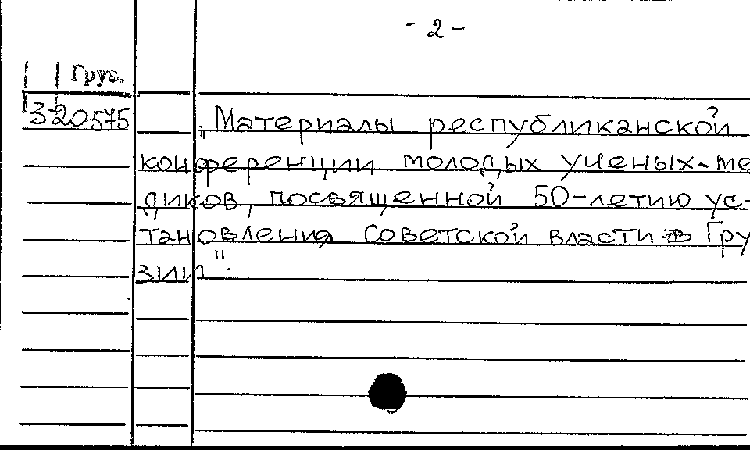 - 2 -
Груз.
320575
„Материалы республиканской
конференции молодых ученых-ме
диков, посвященной 50-летию ус-
тановления Советской власти в Гру
зии".